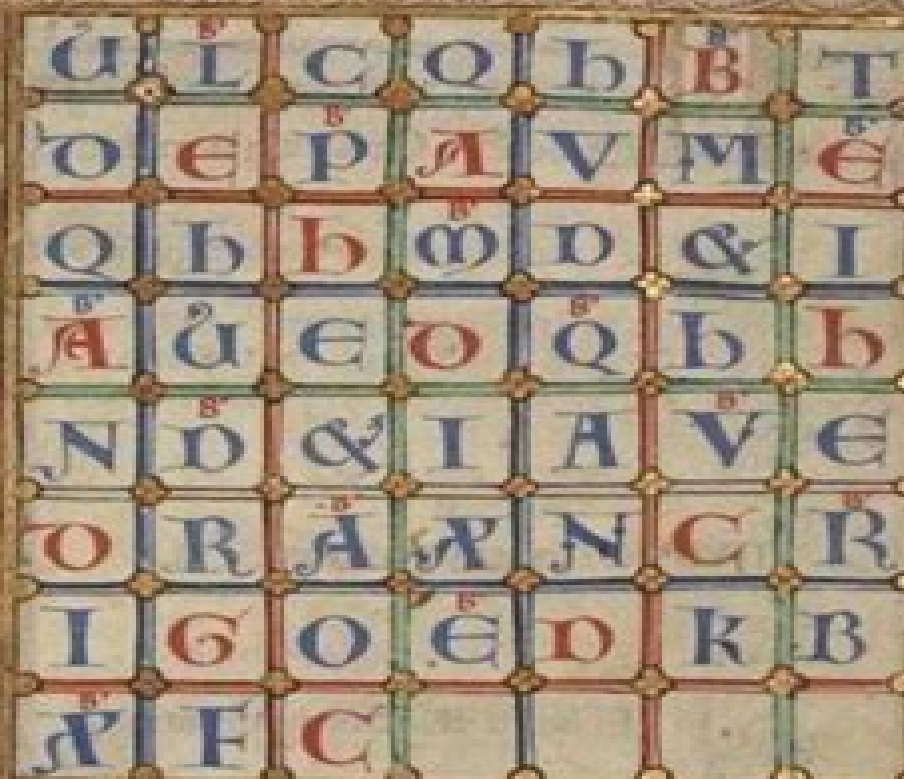 U L C Q h B T
D E P A V M E
Q h h M D & I
A U E D Q h h
N D & I A V E
D R A X N C R
I G O E D K B
X F C